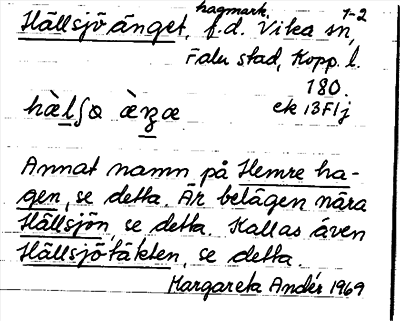 hagmark, 1-2
Hällsjöänget, f.d. Vika sn,
Falu stad, Kopp. l.
180.
ek 13F1j
hὰlʃⱺ ὰŋæ
Annat namn på Hemre ha-
gen, se detta. Är belägen nära
Hällsjön, se detta. Kallas även
Hällsjötäkten, se detta.
Margareta Andér 1969